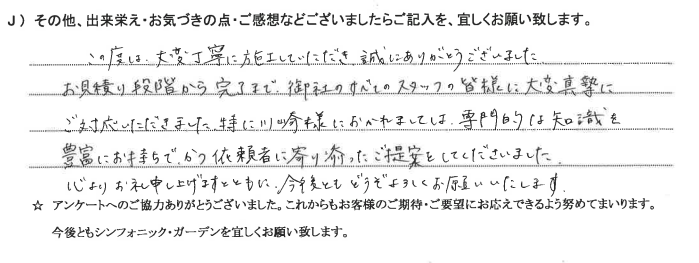 J） その他、出来栄え・お気づきの点・ご感想などございましたらご記入を、宜しくお願い致します。
この度は、大変丁寧に施工していただき、誠にありがとうございました
お見積り段階から完了まで、御社のすべてのスタッフの皆様に大変真摯に
ご対応いただきました。特に川崎様におかれましては、専門的な知識を
豊富にお持ちで、かつ依頼者に寄り添ったご提案をしてくださいました。
心よりお礼申し上げますとともに、今後ともどうぞよろしくお願いいたします。
☆ アンケートへのご協力ありがとうございました。これからもお客様のご期待・ご要望にお応えできるよう努めてまいります。
今後ともシンフォニック・ガーデンを宜しくお願い致します。